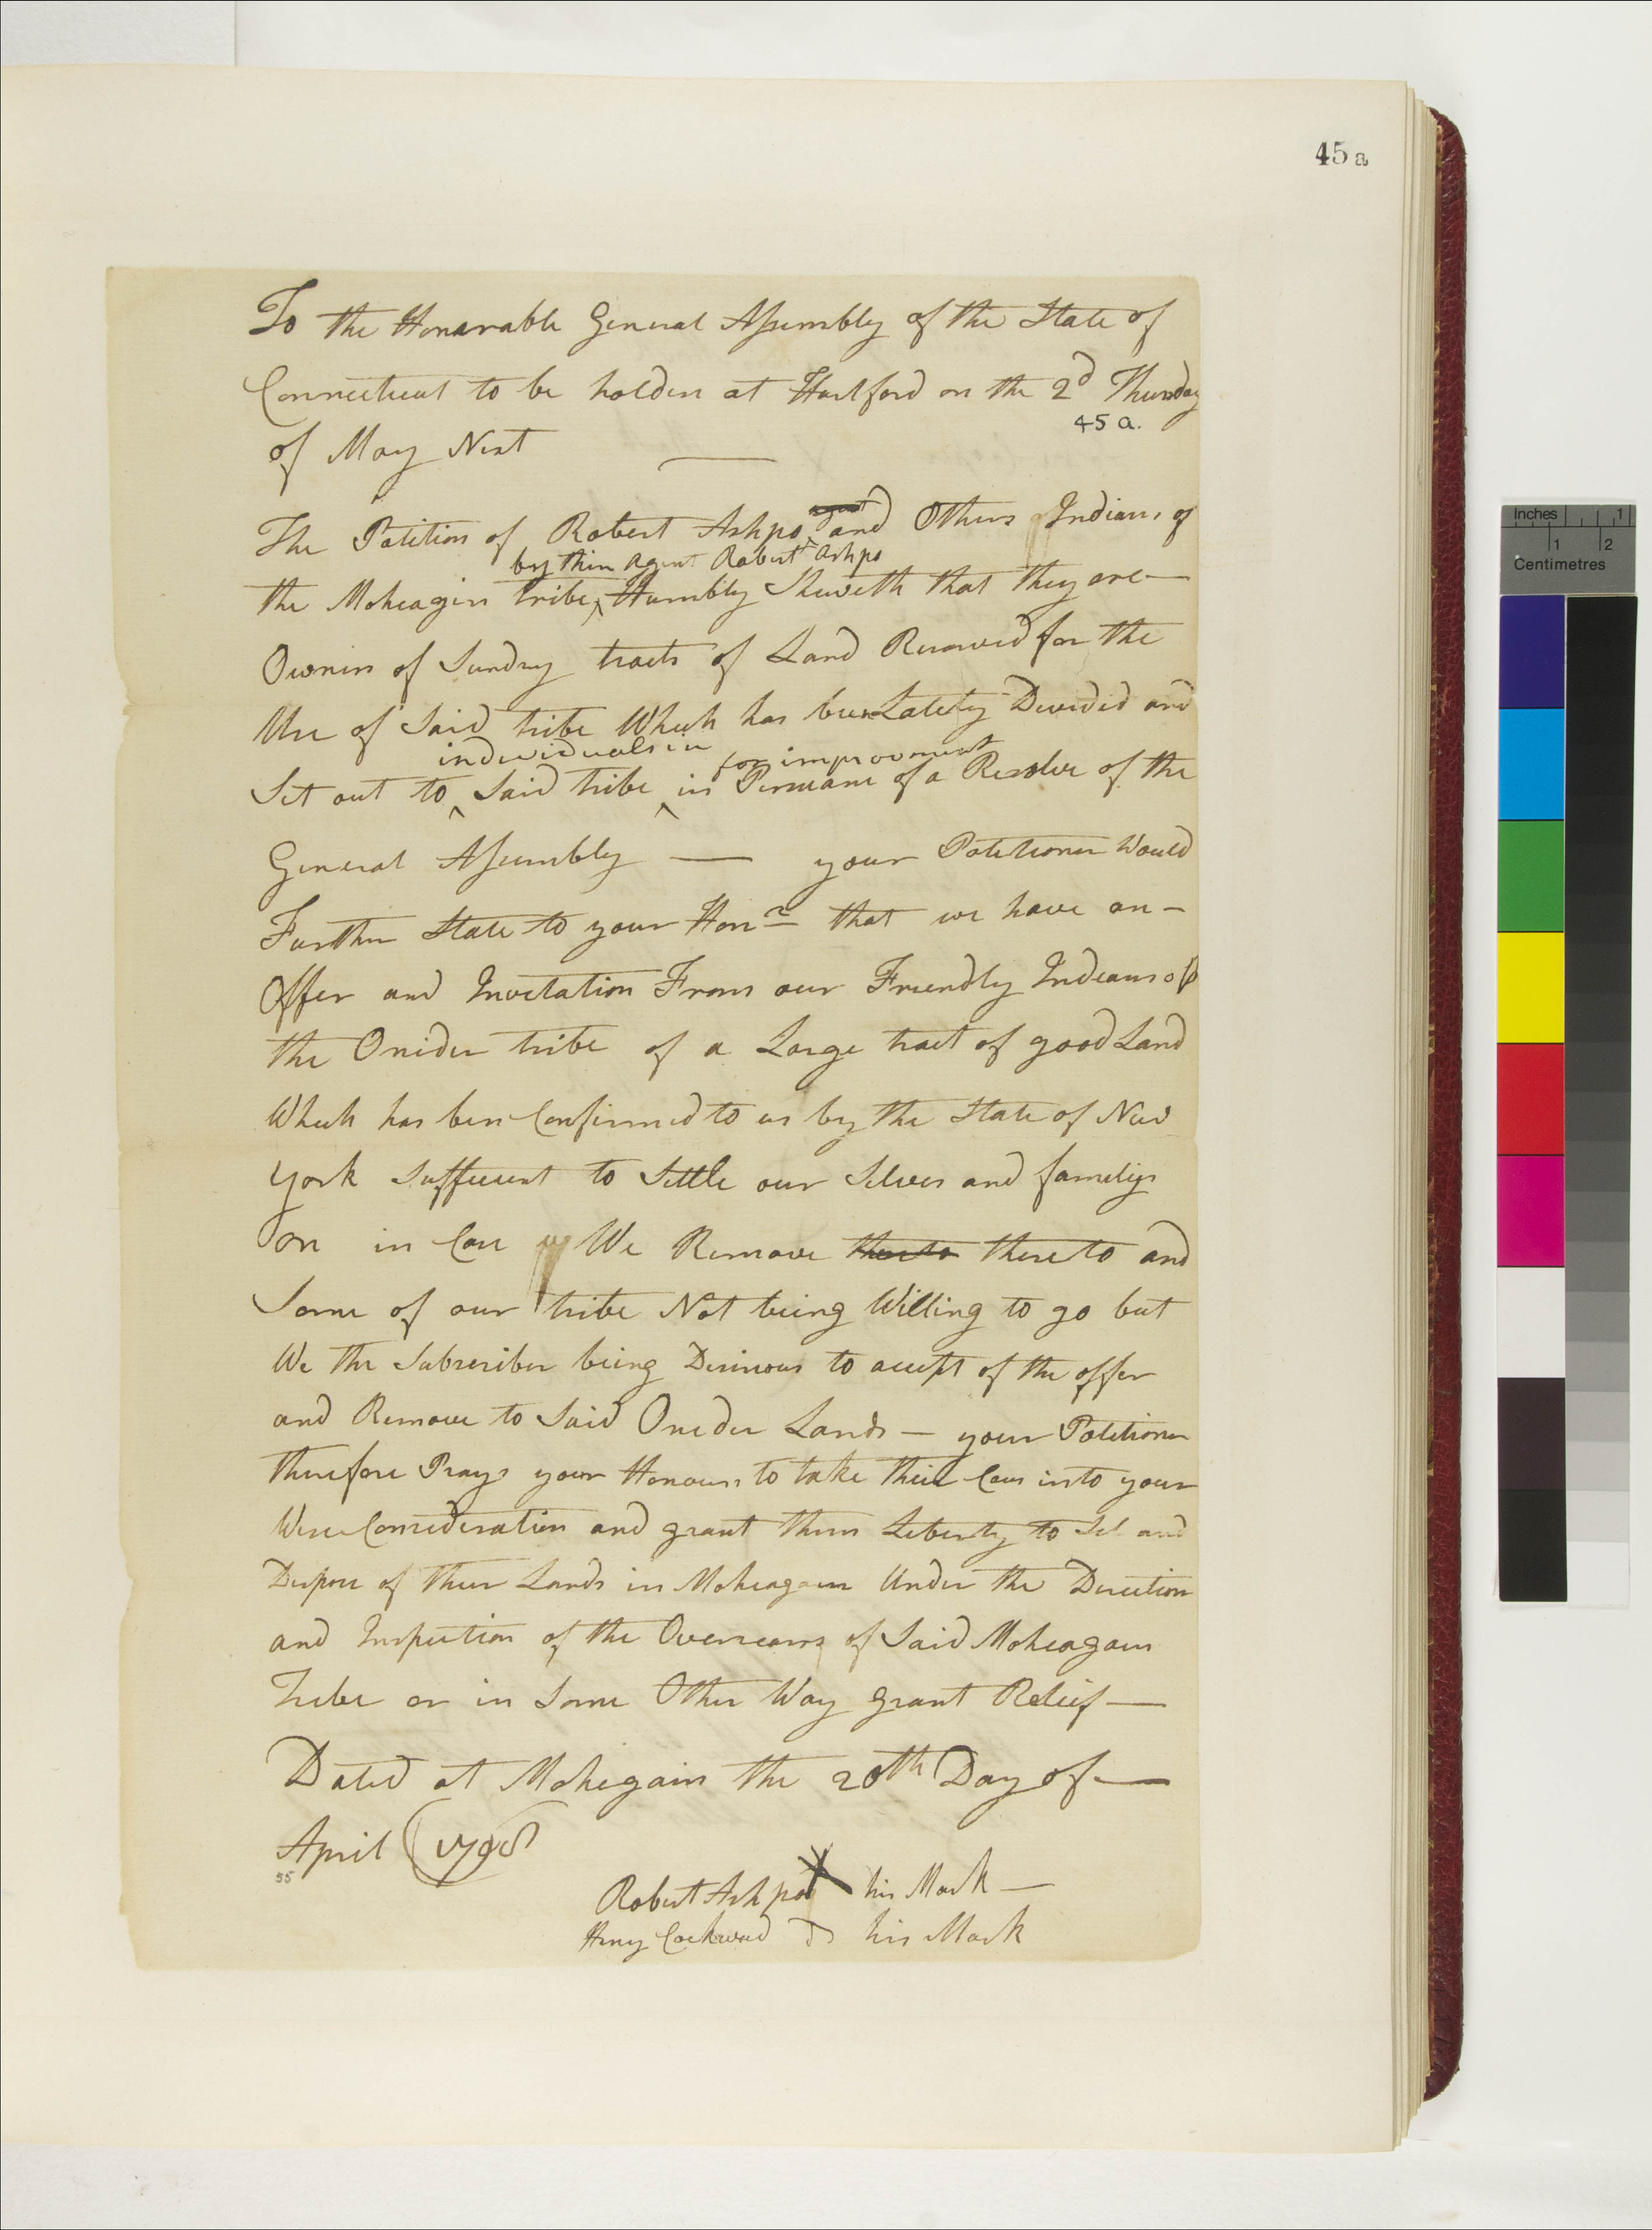 45a
To the Honarable General Assembly of the State of
Connecticut to be holden at Hartford on the 2d Thursday
45a.
of May Next
The Petition of Robert Ashpo and Others Indians of
by thier Agent Robert Ashpo
the Moheagin tribe, Humbly Sheweth that they are
Owners of Sundry tracts of Land Reserved for the
Use of Said tribe Which has been Lately Devided and
individuals in for improovment
Set out to Said tribe in Persuanc of a Resolve of the
General Assembly — your Petitioner Would
Further State to your Honrs that we have an -
Offer and Invetation From our Friendly Indeans of
the Onider tribe of a Large tract of good Land
Which has ben Confirmed to us by the State of New
York Suffecient to Settle our Selves and familys
on in Case We Remove thereto thereto and
Some of our tribe Not being Willing to go but
We the Subscriber being Desirous to accept of the offer
and Remove to Said Oneder Lands — your Petitioner
therefore Prays your Honours to take their Caus into your
Wise Consideration and grant them Leberty to Sel and
Despose of their Lands in Moheagain Under the Derection
and Inspection of the Overseears of Said Moheagain
Tribe or in Some Other Way grant Releif —
Dated at Mohegain the 20th Day of —
April 1798
55
Robert Ashpo X his Mark —
Henry Cockwad his Mark
Inches 1
1 2
Centimetres